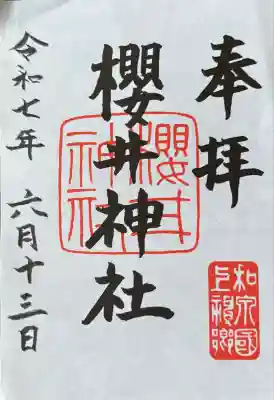 奉拝
櫻井神社
櫻井
神社
和泉國
上神郷
令和七年 六月十三日